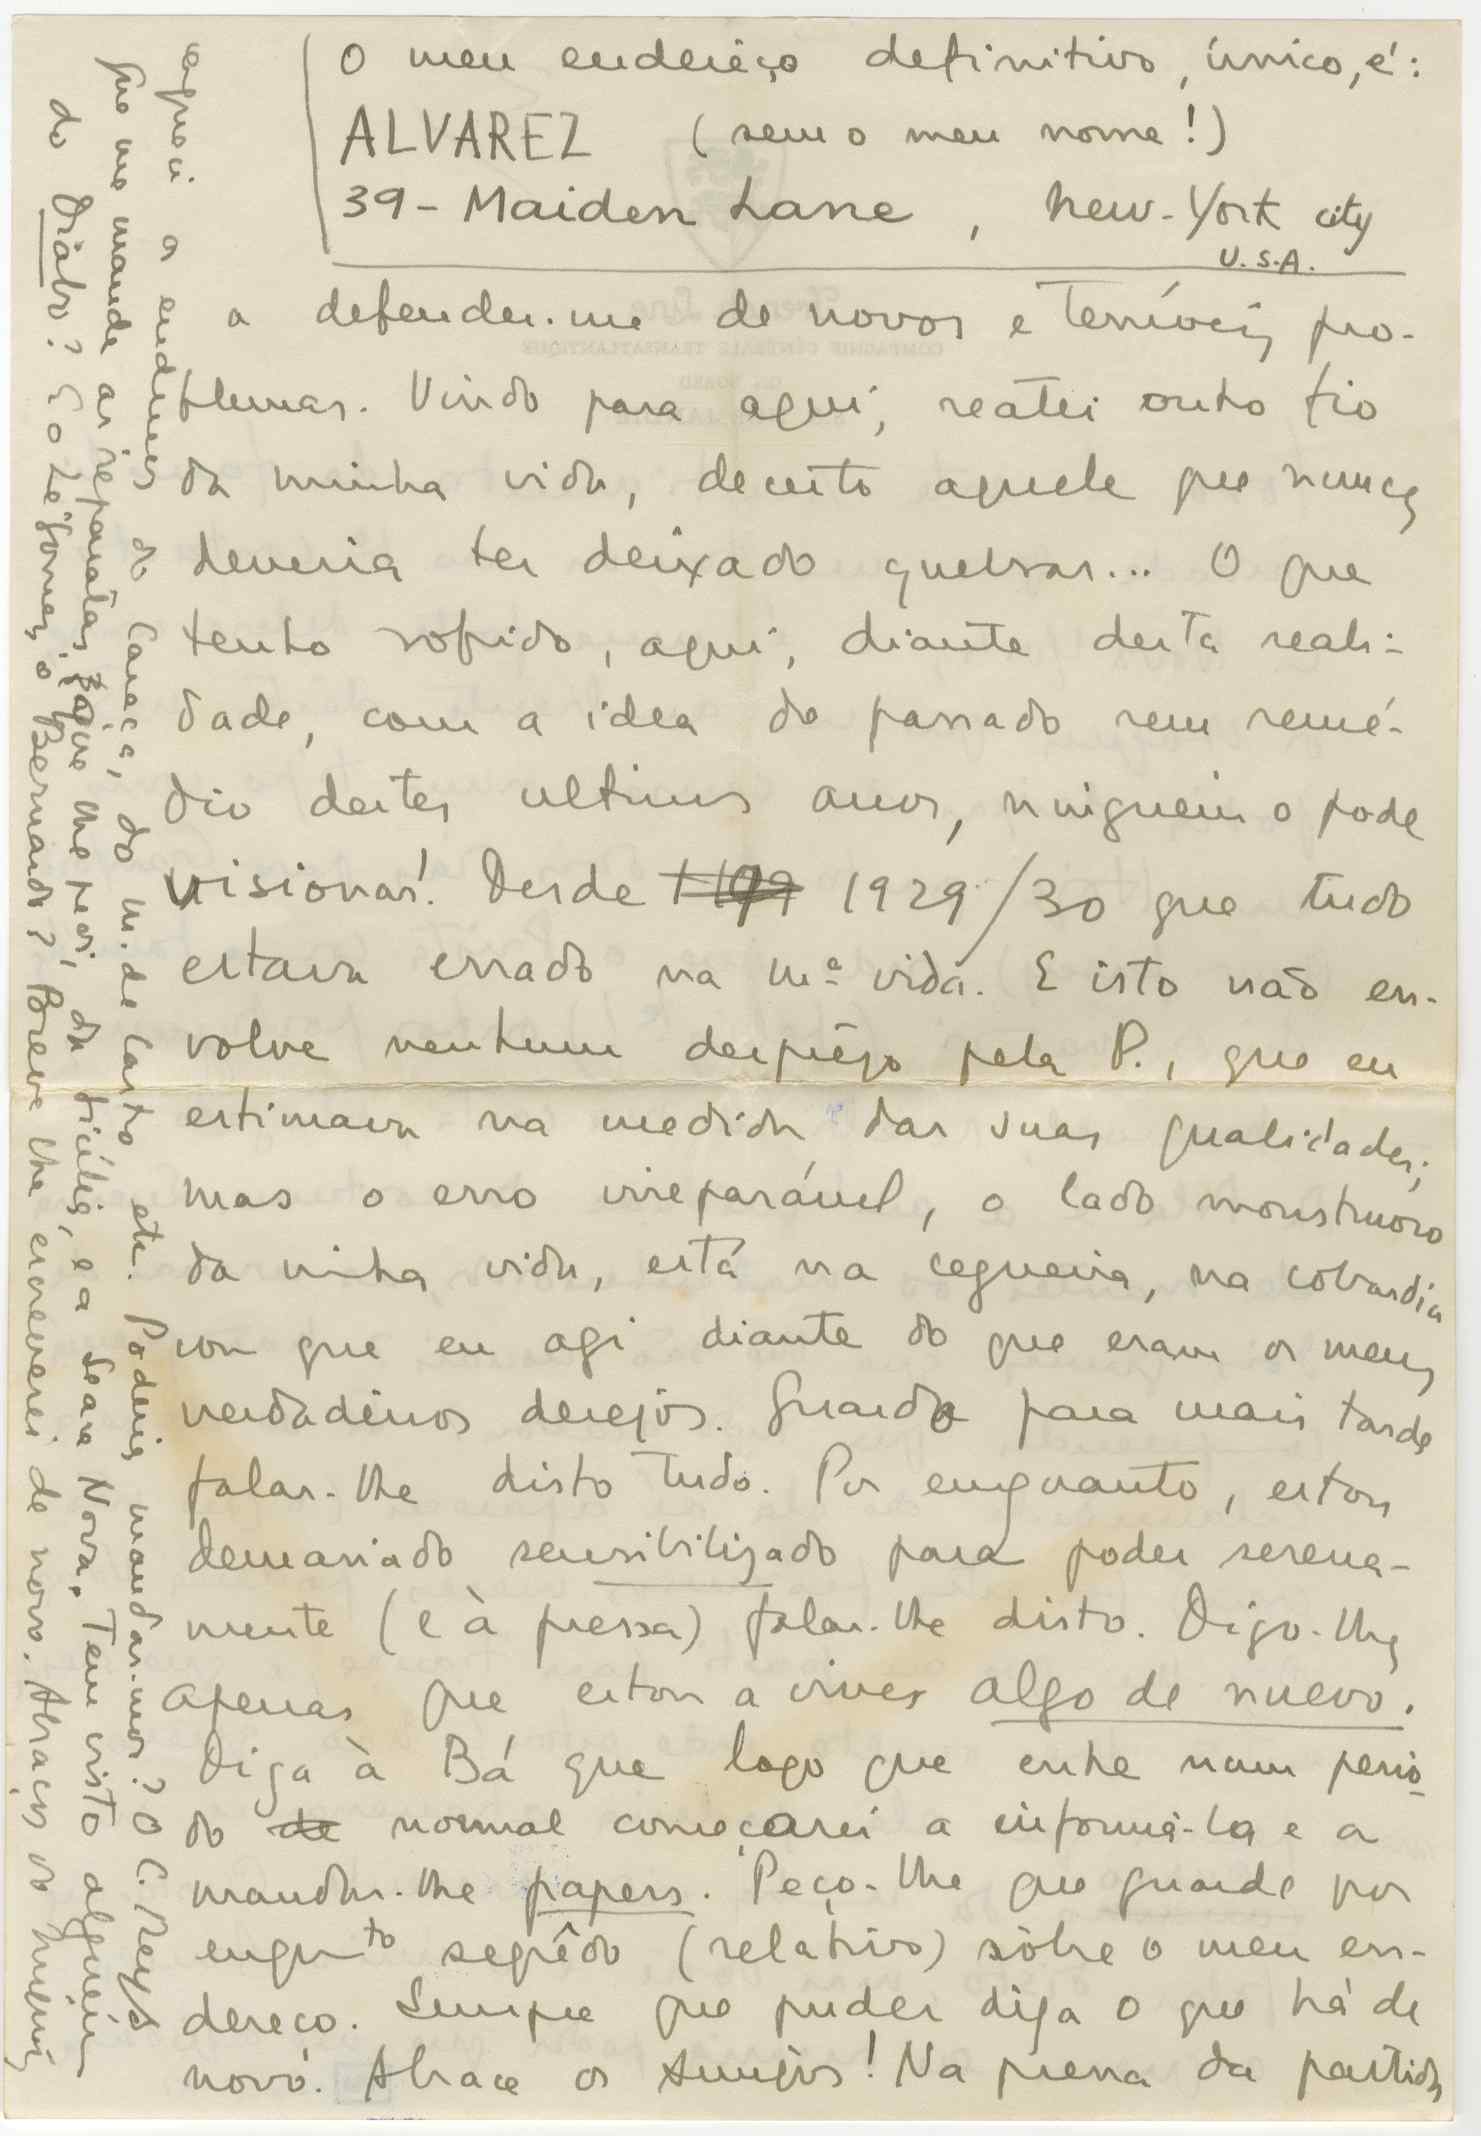 O meu endereço definitivo, único, é:
ALVAREZ (sem o meu nome!)
39 - Maiden Lane, New-York city
U.S.A.
a defender-me de novos e terríveis pro-
blemas. Vindo para aqui, reatei outro fio
da minha vida, decerto aquele que nunca
deveria ter deixado quebrar... O que
tenho sofrido, aqui, diante desta reali-
dade, com a idea do passado sem remé-
dio destes ultimos anos, ninguem o pode
visionar! Desde 1929/30 que tudo
estava errado na mª vida. E isto não en-
volve nenhum desprêzo pela P., que eu
estimava na medida das suas qualidades;
mas o erro irreparável, o lado monstruoso
da minha vida, está na cegueira, na cobardia
com que eu agi diante do que eram os meus
verdadeiros desejos. Guardo para mais tarde
falar-lhe disto tudo. Por emquanto, estou
demasiado sensibilizado para poder serena-
mente (e à pressa) falar-lhe disto. Digo-lhe
apenas que estou a viver algo de nuevo.
Diga à Bá que logo que entre num perío-
do de normal começarei a informá-la e a
mandar-lhe papers. Peço-lhe que guarde por
enqu.to segrêdo (relativo) sôbre o meu en-
dereço. Sempre que puder diga o que há de
novo. Abrace os Amigos! Na pressa da partida
esqueci os endereços do Caraça, do M. de Castro etc. Poderia mandar-mos? O C. Reys
que me mande as separatas que lhe pedi, da , e a Seara Nova. Tem visto alguém
do Diabo? E o Zé Gomes, o Bernardo? Breve lhe escreverei de novo. Abraços do